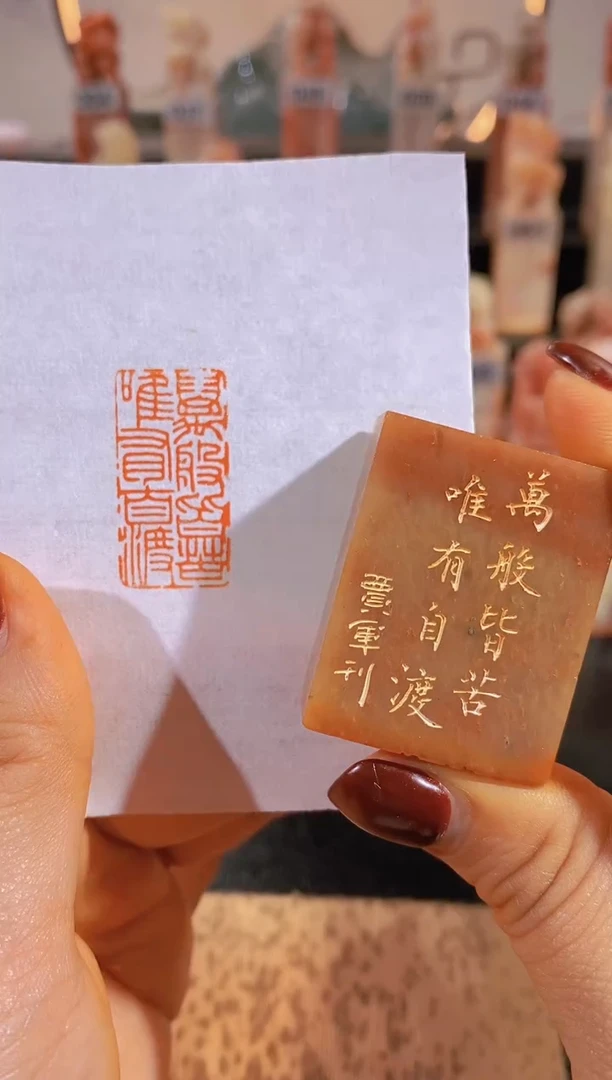 萬般皆苦
唯有自渡
萬般皆苦
唯有自渡
賈軍刊